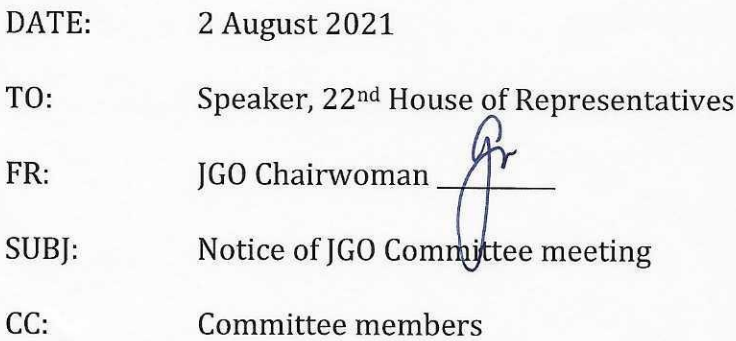 DATE: 2 August 2021
TO: Speaker, 22nd House of Representatives
FR: JGO Chairwoman
SUBJ: Notice of JGO Committee meeting
CC: Committee members